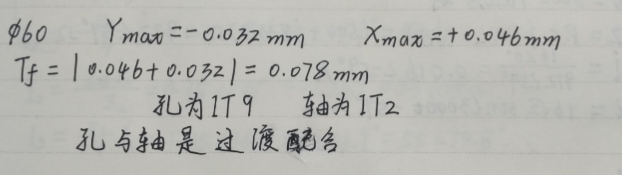 φ60 Ymax=-0.032mm Xmax=+0.046mm
Tf=|0.046+0.032|=0.078mm
孔为IT9 轴为IT2
孔与轴是过渡配合